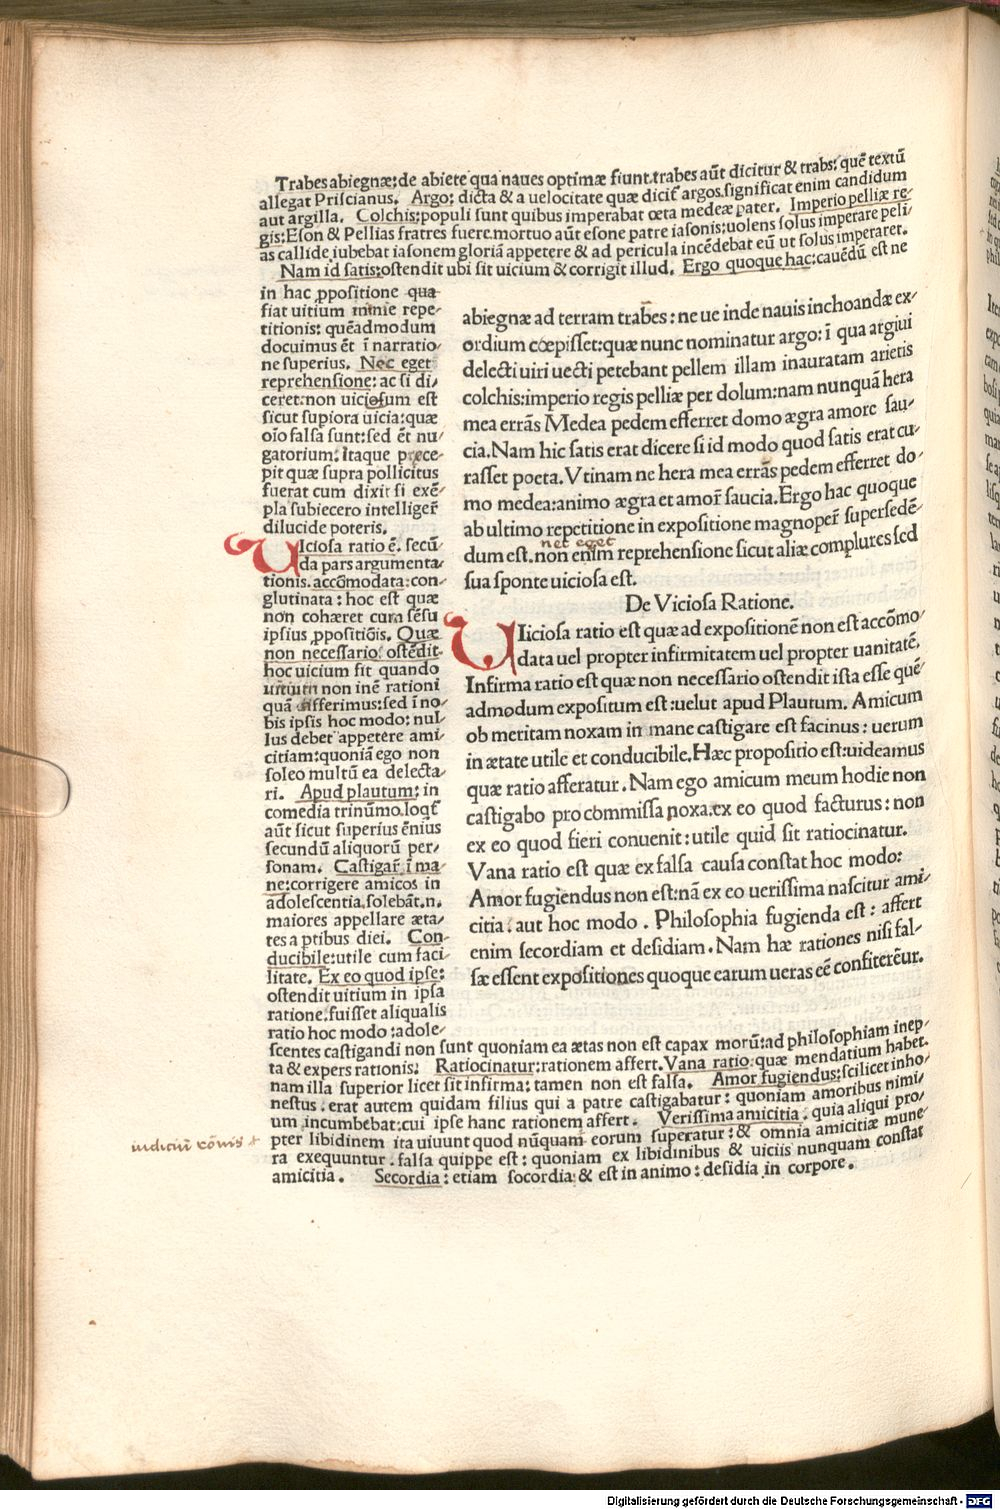 Trabes abiegnæ: de abiete qua naues optimæ fiunt. trabes aūt dicitur & trabs: quē textū
allegat Priscianus. Argo: dicta & a uelocitate quæ dicit̄ argos. significat enim candidum
aut argilla. Colchis: populi sunt quibus imperabat œta medeæ pater. Imperio pelliæ re-
gis: Eson & Pellias fratres fuere. mortuo aūt esone patre iasonis: uolens solus imperare peli/
as callide iubebat iasonem gloriā appetere & ad pericula incēdebat eū ut solus imperaret.
Nam id satis: ostendit ubi sit uicium & corrigit illud. Ergo quoque hac: cauēdū est ne
in hac ꝓpositione qua
fiat uitium minie repe-
titionis: quēadmodum
docuimus ēt ī narratio/
ne superius. Nec eget
reprehensione: ac si di/
ceret: non uiciosum est
sicut supiora uicia: quæ
oīo falsa sunt: sed ēt nu/
gatorium: itaque præce-
pit quæ supra pollicitus
fuerat cum dixit si exē/
pla subiecero intelliger̄
dilucide poteris.
UIciosa ratio ē. secū/
da pars argumenta/
tionis. accōmodata: con-
glutinata: hoc est quæ
non cohæret cum sēsu
ipsius ꝓpositiōis. Quæ
non necessario. ostēdit
hoc uicium fit quando
uitium non inē rationi
quā differimus: sed ī no/
bis ipsis hoc modo: nul/
lus debet appetere ami/
citiam: quoniā ego non
soleo multū ea delecta/
ri. Apud plautum: in
comedia trinūmo. loqt̄
aūt sicut superius ēnius
secundū aliquorū per/
sonam. Castigar̄ ī ma/
ne: corrigere amicos in
adolescentia. solebāt. n.
maiores appellare æta/
tes a ptibus diei. Con-
ducibile: utile cum faci/
litate. Ex eo quod ipse:
ostendit uitium in ipsa
ratione. fuisset aliqualis
ratio hoc modo: adole-
scentes castigandi non sunt quoniam ea ætas non est capax morū: ad philosophiam inep/
ta & expers rationis: Ratiocinatur: rationem affert. Vana ratio quæ mendatium habet.
nam illa superior licet sit infirma: tamen non est falsa. Amor fugiendus: scilicet inho/
nestus. erat autem quidam filius qui a patre castigabatur: quoniam amoribus nimi/
um incumbebat: cui ipse hanc rationem affert. Verissima amicitia. quia aliqui pro/
pter libidinem ita uiuunt quod nūquam eorum superatur: & omnia amicitiæ mune/
ra exequuntur. falsa quippe est: quoniam ex libidinibus & uiciis nunquam constat
amicitia. Secordia: etiam socordia & est in animo: desidia in corpore.
abiegnæ ad terram trabes: ne ue inde nauis inchoandæ ex-
ordium cœpisset: quæ nunc nominatur argo: ī qua argiui
delecti uiri uecti petebant pellem illam inauratam arietis
colchis: imperio regis pelliæ per dolum: nam nunquā hera
mea errās Medea pedem efferret domo ægra amore sau/
cia. Nam hic satis erat dicere si id modo quod satis erat cu/
rasset poeta. Vtinam ne hera mea errās pedem efferret do/
mo medea: animo ægra et amor̄ saucia. Ergo hac quoque
ab ultimo repetitione in expositione magnoper̄ supersedē-
nec eget
dum est. non enim reprehensione sicut aliæ complures sed
sua sponte uiciosa est.
De Viciosa Ratione.
UIiciosa ratio est quæ ad expositionē non est accōmo/
data uel propter infirmitatem uel propter uanitatē.
Infirma ratio est quæ non necessario ostendit ista esse quē/
admodum expositum est: uelut apud Plautum. Amicum
ob meritam noxam in mane castigare est facinus: uerum
in ætate utile et conducibile. Hæc propositio est: uideamus
quæ ratio afferatur. Nam ego amicum meum hodie non
castigabo pro commissa noxa. ex eo quod facturus: non
ex eo quod fieri conuenit: utile quid sit ratiocinatur.
Vana ratio est quæ ex falsa causa constat hoc modo:
Amor fugiendus non est: nā ex eo uerissima nascitur ami/
citia. aut hoc modo. Philosophia fugienda est: affert
enim secordiam et desidiam. Nam hæ rationes nisi fal-
sæ essent expositiones quoque earum ueras eē confiterēur.
iudiciū
Digitalisierung gefördert durch die Deutsche Forschungsgemeinschaft - DFG